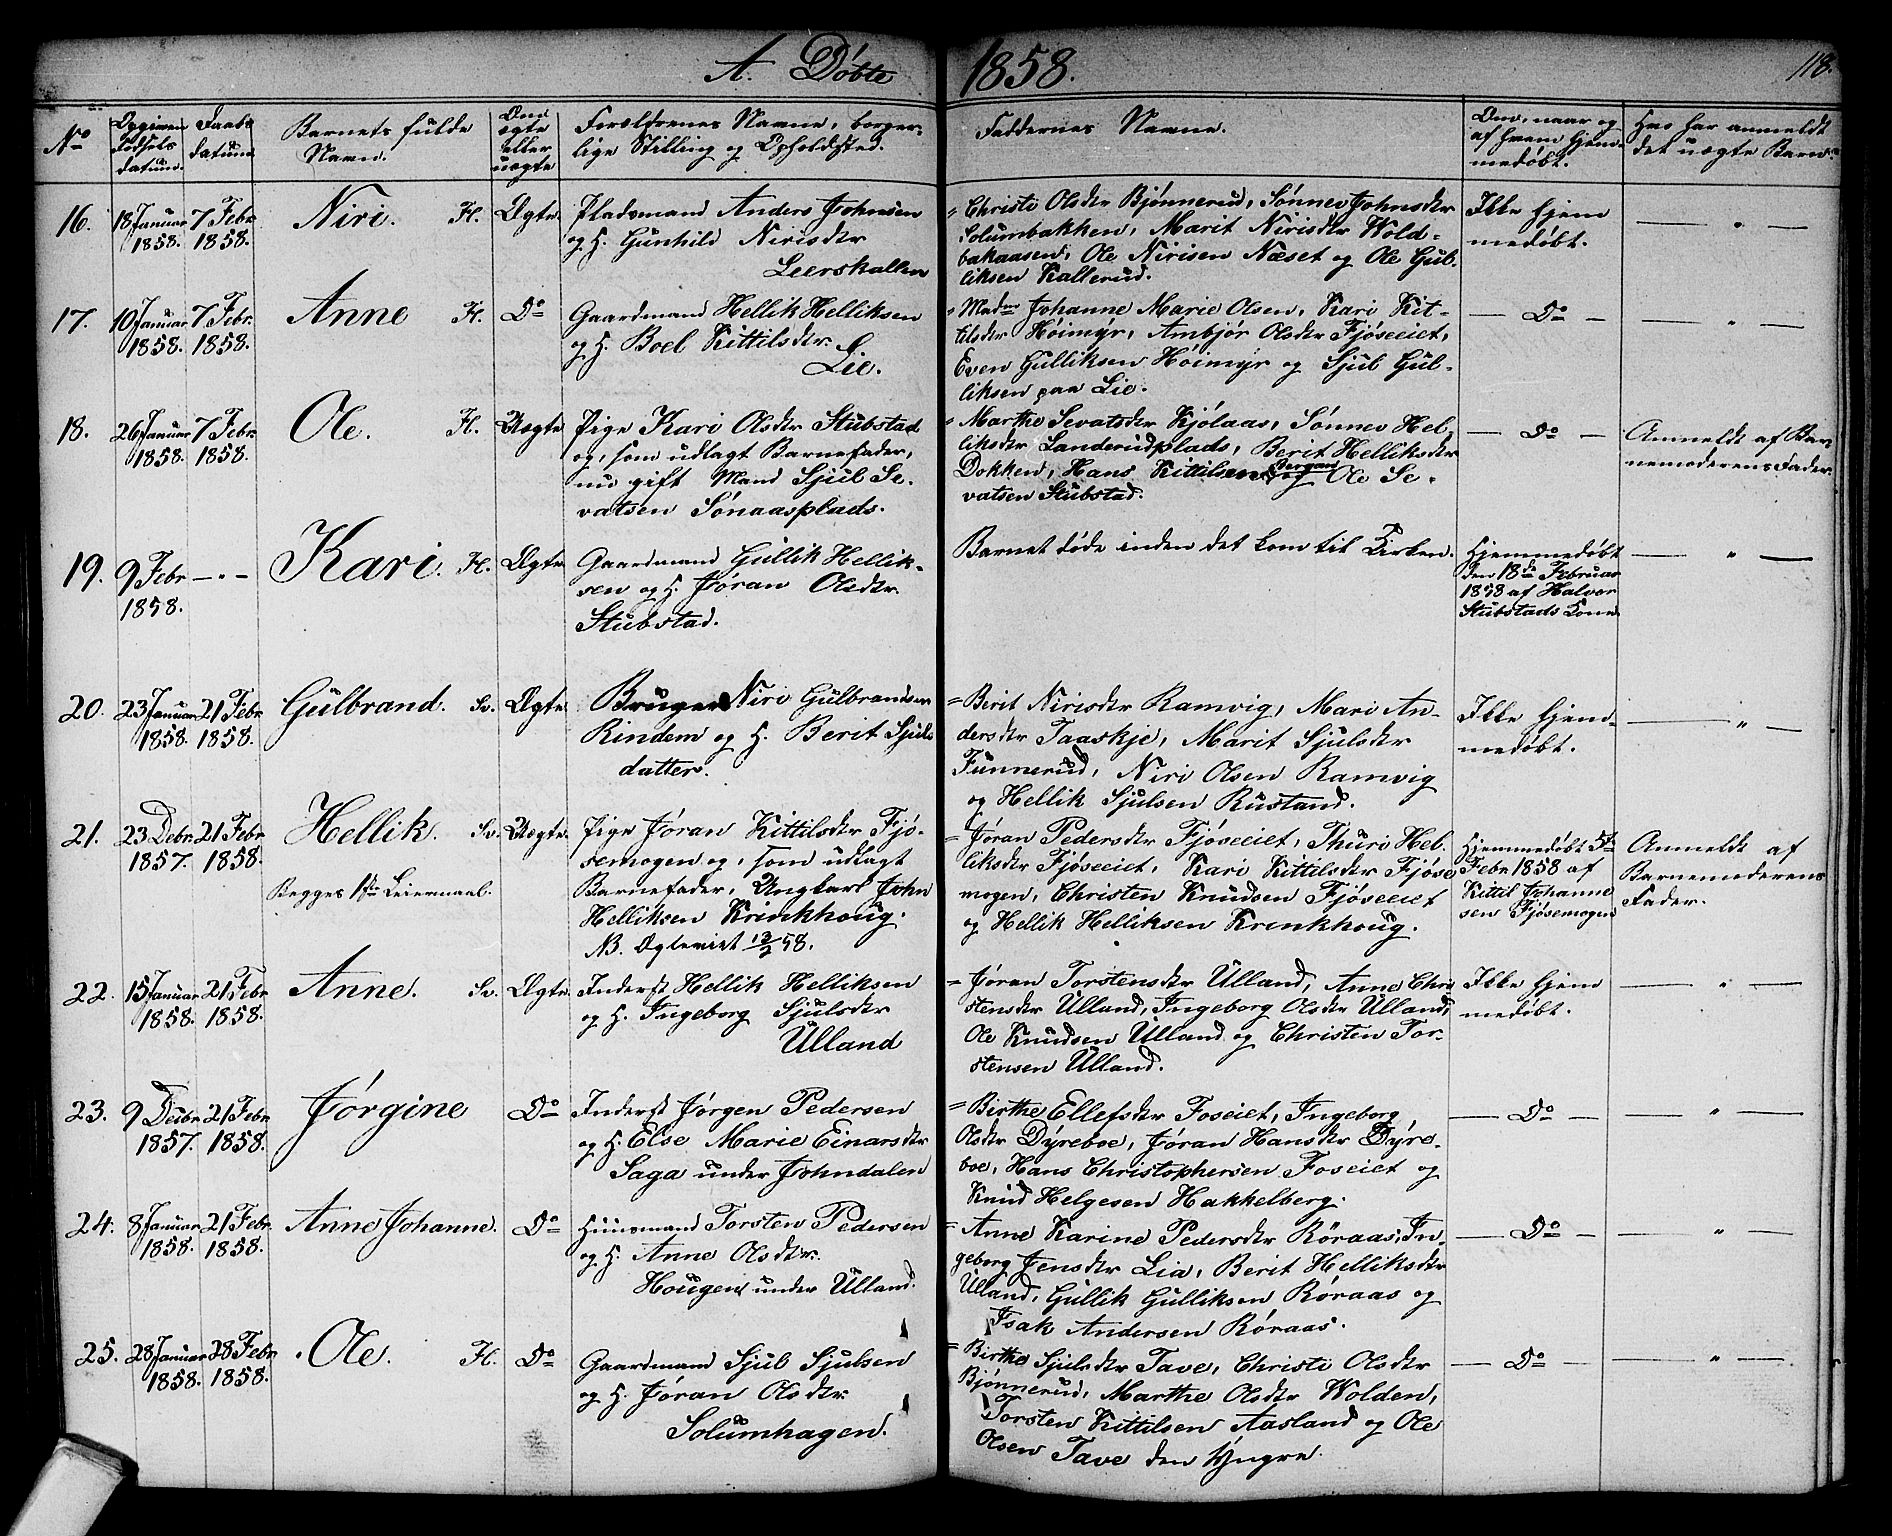 A. Døbte 1858. 118.
No
Opgiven
fødsels
datum.
Daabs
datum.
Barnets fulde
Navn.
Om
ægte
eller
uægte
Forældrenes Navne, borger-
lige Stilling og Opholdssted.
Faddernes Navne.
Om, naar og
af hvem hjem-
medøbt.
Hvo har anmeldt
det uægte Barn.
16. 18 Januar
1858.
7 Febr.
1858.
Niri. H. Ægte.
Pladsmand Anders Johnsen
og H. Gunhild Nirisdtr
Leerskallen
= Christi Olsdtr Bjønnerud, Sønnev Johnsdtr
Solumbakken, Marit Nirisdtr Wold-
bakaasen, Ole Nirisen Næset og Ole Gul-
liksen Kallerud.
Ikke hjem
medøbt.
— " —
17. 10 Januar
1858.
7 Febr.
1858.
Anne H. Do
Gaardmand Hellik Helliksen
og H. Boel Kittilsdtr.
Lie.
= Madm Johanne Marie Olsen, Kari Kit-
tilsdtr Høimyr, Ambjør Olsdtr Fjøseiet,
Even Gulliksen Høimyr og Sjul Gul-
liksen paa Lie.
— Do —
— " —
18. 26 Januar
1858.
7 Febr.
1858.
Ole. H. Uægte
Pige Kari Olsdtr Stubstad
og, som udlagt Barnefader,
nu gift Mand Sjul Se-
vatsen Sønaasplads.
= Marthe Sevatsdtr Kjølaas, Sønnev Hel-
liksdtr Landerudplads, Berit Helliksdtr
Dokken, Hans Kittilsen Bergan og Ole Se-
vatsen Stubstad.
— Do —
Anmeldt af Bar-
nemoderens Fader.
19. 9 Febr
1858.
— " —
Kari. H. Ægte
Gaardmand Gullik Hellik-
sen og H. Jøran Olsdtr.
Stubstad.
Barnet døde inden det kom til Kirken.
Hjemmedøbt
den 18de Februar
1858 af Halvor
Stubstads Kone.
— " —
20. 23 Januar
1858.
21 Febr
1858.
Gulbrand. Sv. Ægte.
Bruger Niri Gulbrandsen
Rindem og H. Berit Sjuls
datter.
= Berit Nirisdtr Ramvig, Mari An-
dersdtr Taaskje, Marit Sjulsdtr
Funnerud, Niri Olsen Ramvig
og Hellik Sjulsen Rustand.
Ikke hjem-
medøbt.
— " —
21. 23 Debr.
1857.
21 Febr
1858.
Hellik. Sv. Uægte.
Begges 1ste Leiermaal.
Pige Jøran Kittilsdtr Fjø-
semogen og, som udlagt
Barnefader, Ungkarl John
Helliksen Krinkhoug.
NB. Ægteviet 13/7 58.
= Jøran Pedersdtr Fjøseeiet, Thuri Hel-
liksdtr Fjøseeiet, Kari Kittilsdtr Fjøse
mogen, Christen Knudsen Fjøseeiet
og Hellik Helliksen Krinkhoug.
Hjemmedøbt 5te
Febr 1858 af
Kittil Johanne
sen Fjøsemogen
Anmeldt af
Barnemoderens
Fader.
22. 15 Januar
1858.
21 Febr
1858.
Anne. Sv. Ægte.
Inderst Hellik Helliksen
og H. Ingeborg Sjulsdtr
Ulland
= Jøran Torstensdtr Ulland, Anne Chri-
stensdtr Ulland, Ingeborg Olsdtr Ulland,
Ole Knudsen Ulland og Christen Tor-
stensen Ulland.
Ikke hjem
medøbt.
— " —
23. 9 Decbr.
1857.
21 Febr
1858.
Jørgine Do
Inderst Jørgen Pedersen
og H. Else Marie Einarsdtr
Saga under Johndalen
= Birthe Ellefsdtr Foseiet, Ingeborg
Olsdtr Dyreboe, Jøran Hansdtr Dyre-
boe, Hans Christophersen Foseiet og
Knud Helgesen Hakkelberg.
— Do —
— " —
24. 8 Januar
1858.
21 Febr.
1858.
Anne Johanne. Do
Huusmand Torsten Pedersen
og H. Anne Olsdtr.
Hougen under Ulland.
= Anne Karine Pedersdtr Røraas, In-
geborg Jensdtr Lia, Berit Helliksdtr
Ulland, Gullik Gulliksen Røraas og
Isak Andersen Røraas.
— Do —
— " —
25. 28 Januar
1858.
28 Febr.
1858.
Ole. H. Do
Gaardmand Sjul Sjulsen
og H. Jøran Olsdtr.
Solumhagen.
= Birthe Sjulsdtr Tave, Christi Olsdtr
Bjønnerud, Marthe Olsdtr Wolden,
Torsten Kittilsen Aasland og Ole
Olsen Tave den Yngre.
— Do —
— " —